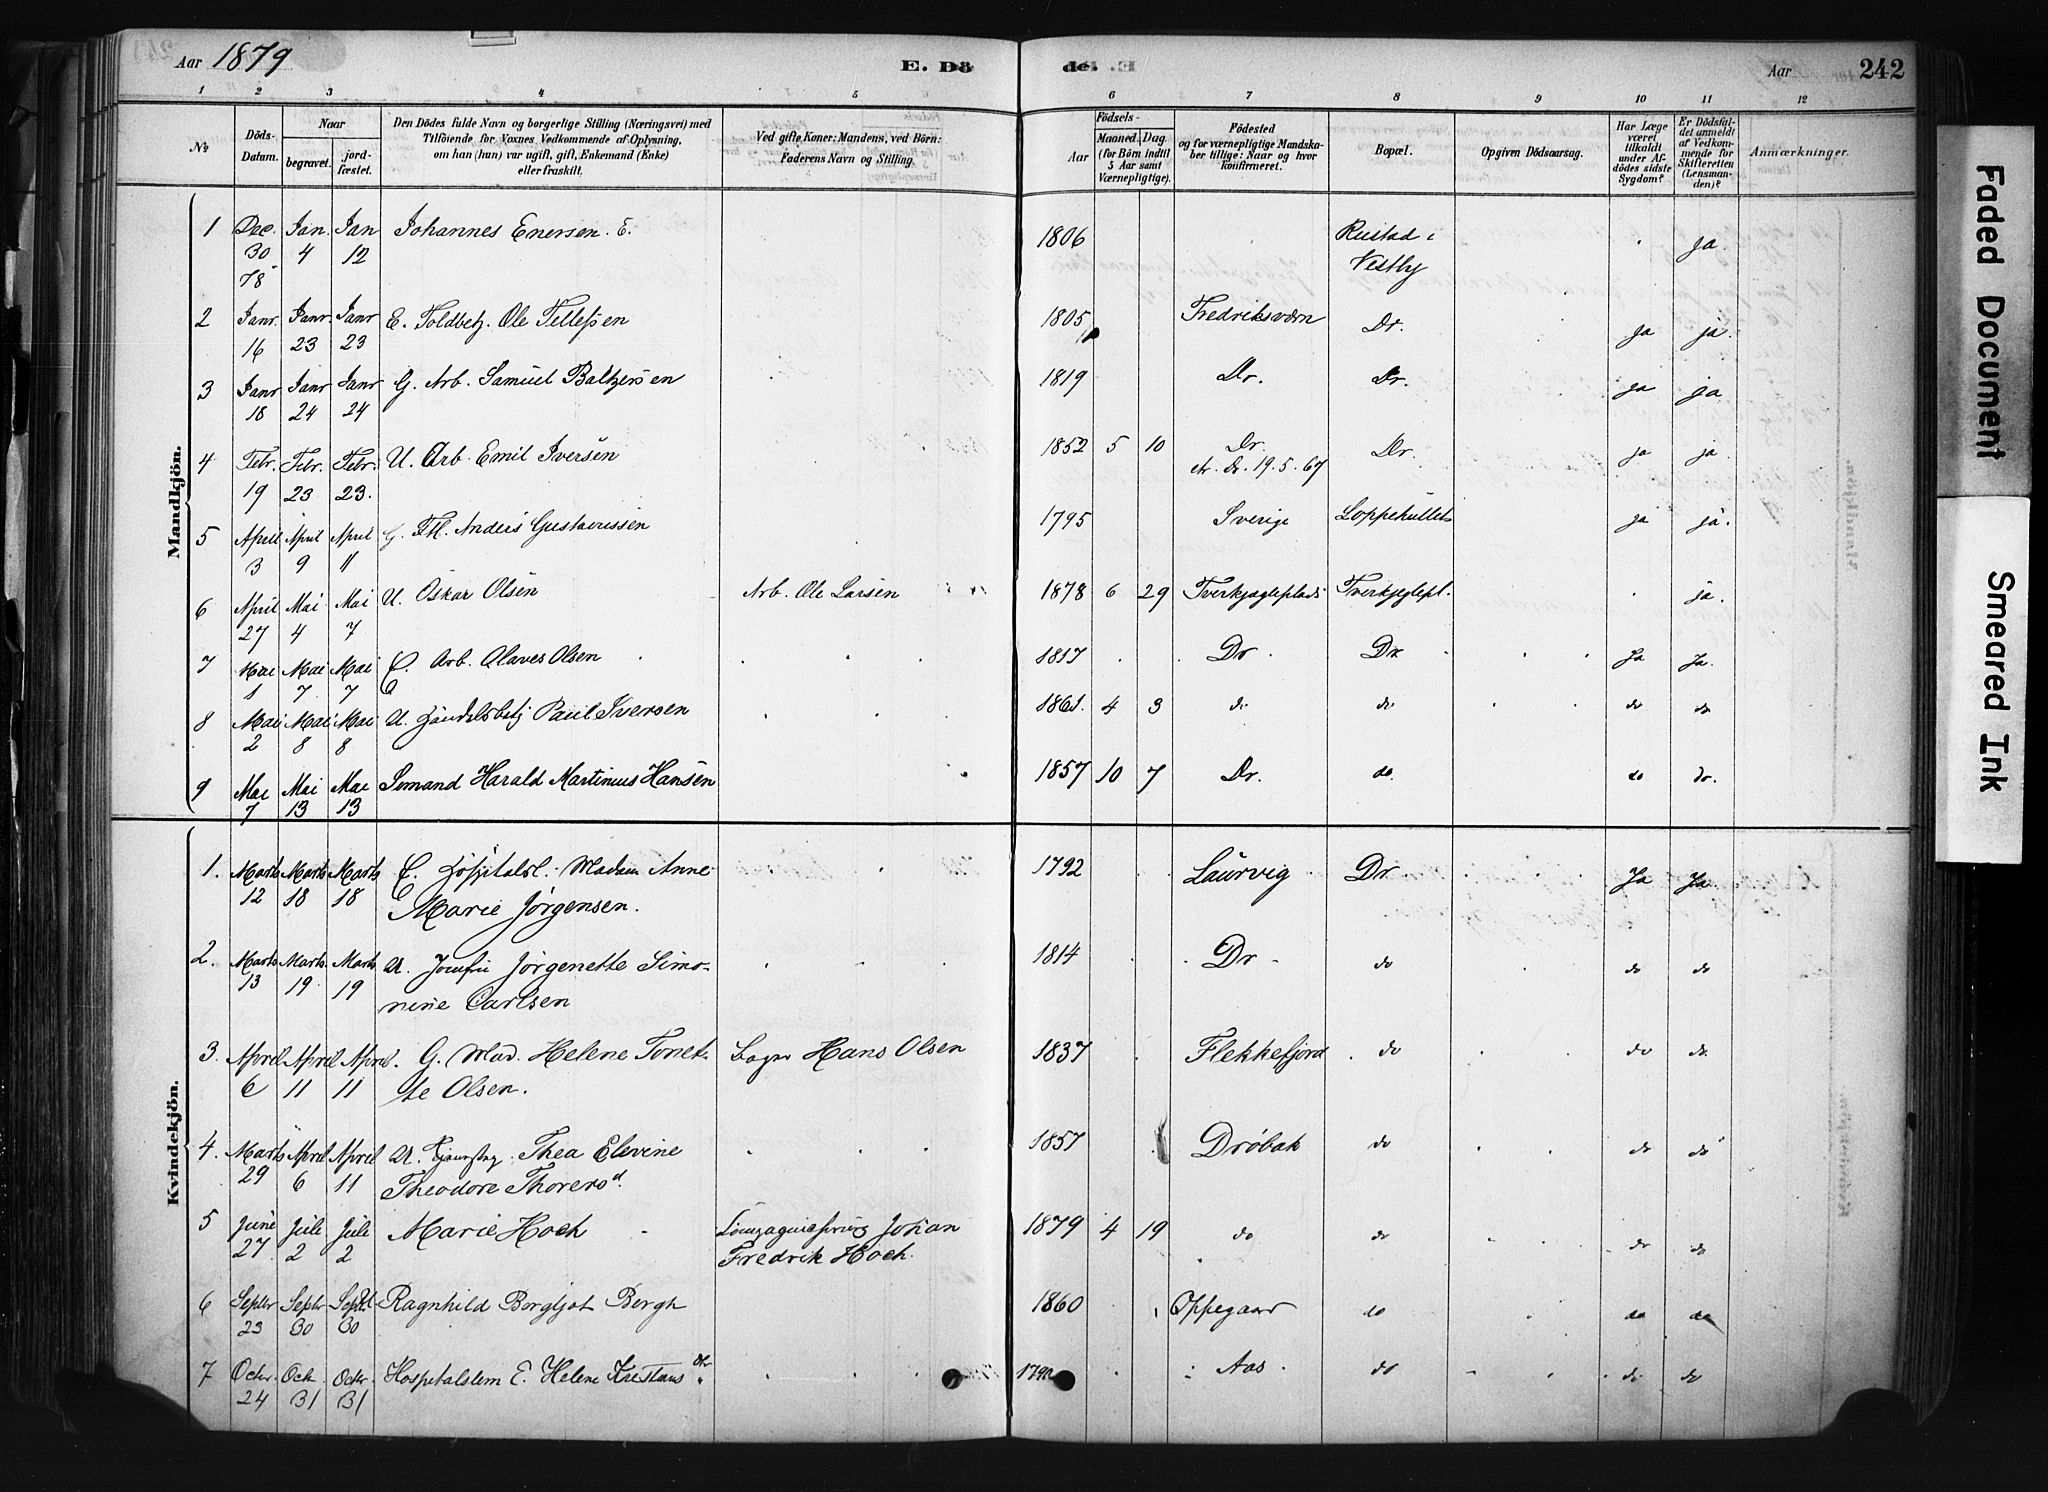 Aar 1879
E. Dö
de.
Aar
242
1 2 3 4 5 6 7 8 9 10 11 12
No
Döds-Datum.
Naar
begravet.
jord-fæstet.
Den Dödes fulde Navn og borgerlige Stilling (Næringsvei) med
Tilföiende for Voxnes Vedkommende af Oplysning,
om han (hun) var ugift, gift, Enkemand (Enke)
eller fraskilt.
Ved gifte Koner: Mandens, ved Börn:
Faderens Navn og Stilling.
Födsels-
Aar
Maaned. Dag.
(for Börn indtil
5 Aar samt
Værnepligtige).
Födested
og for værnepligtige Mandska-
ber tillige: Naar og hvor
konfirmeret.
Bopæl.
Opgiven Dödsaarsag.
Har Læge
været
tilkaldt
under Af-
dödes sidste
Sygdom?
Er Dödsfal-
det anmeldt
af Vedkom-
mende for
Skifteretten
(Lensman-
den)?
Anmærkninger.
Mandkjön.
1 Dec. 30 78 Jan. 4 Jan 12 Johannes Enersen. E. 1806 Rustad i Vestby ja.
2 Janr. 16 Janr. 23 Janr 23 E. Toldbetj. Ole Tellefsen 1805 Fredriksværn Dr. ja ja.
3 Janr 18 Janr 24 Janr 24 G. Arb. Samuel Baltzersen 1819 Dr. Dr. ja ja
4 Febr. 19 Febr. 23 Febr. 23. U. Arb. Emil Iversen 1852 5 10 Dr. Dr. 19.5.67 Dr. ja ja.
5 April 3 April 9 April 11 G. Anders Gustavussen 1795 Sverige Loppehullet ja ja.
6 April 27 Mai 4 Mai 7 U. Oskar Olsen Arb. Ole Larsen 1878 6 29 Tverkjægleplads Tverkjeglepl. ja.
7 Mai 1 Mai 7 Mai 7 E. Arb. Olaves Olsen 1817 Dr Dr Ja Ja.
8 Mai 2 Mai 8 Mai 8 U. Handelsbetj Paul Iversen 1861. 4 3 do do do do
9 Mai 7 Mai 13 Mai 13 Sømand Harald Martinius Hansen 1857 10 7 Dr. do. do do.
Kvindekjön.
1. Marts 12 Marts 18 Marts 18 E. Hospitalsl. Madam Anne
Marie Jørgensen. 1792 Laurvig Dr. Ja Ja.
2. Marts 13 Marts. 19 Marts 19 U. Jomfru Jørgenette Simo-
nine Carlsen 1814 Dr do do do
3. April 6 April 11 April. 11 G. Mad. Helene Tonet-
te Olsen. Bager Hans Olsen 1837 Flekkefjord do do do.
4. Marts 29 April 6 April 11 U. Thea Elevine
Theodore Thorersd. 1857 Drøbak do do do
5 Juni 27. Juli 2 Juli 2 Marie Hoch Johan
Fredrik Hoch. 1879 4 19 do do do do
6 Septbr 23 Septbr 30 Septbr 30 Ragnhild Borgljot Bergh 1860 Oppegaard do do do
7 Octbr. 24 Octb 31 Octbr. 31 Hospitalslem E. Helene Kristians dtr. Aas do do do
Faded Document
Smeared Ink